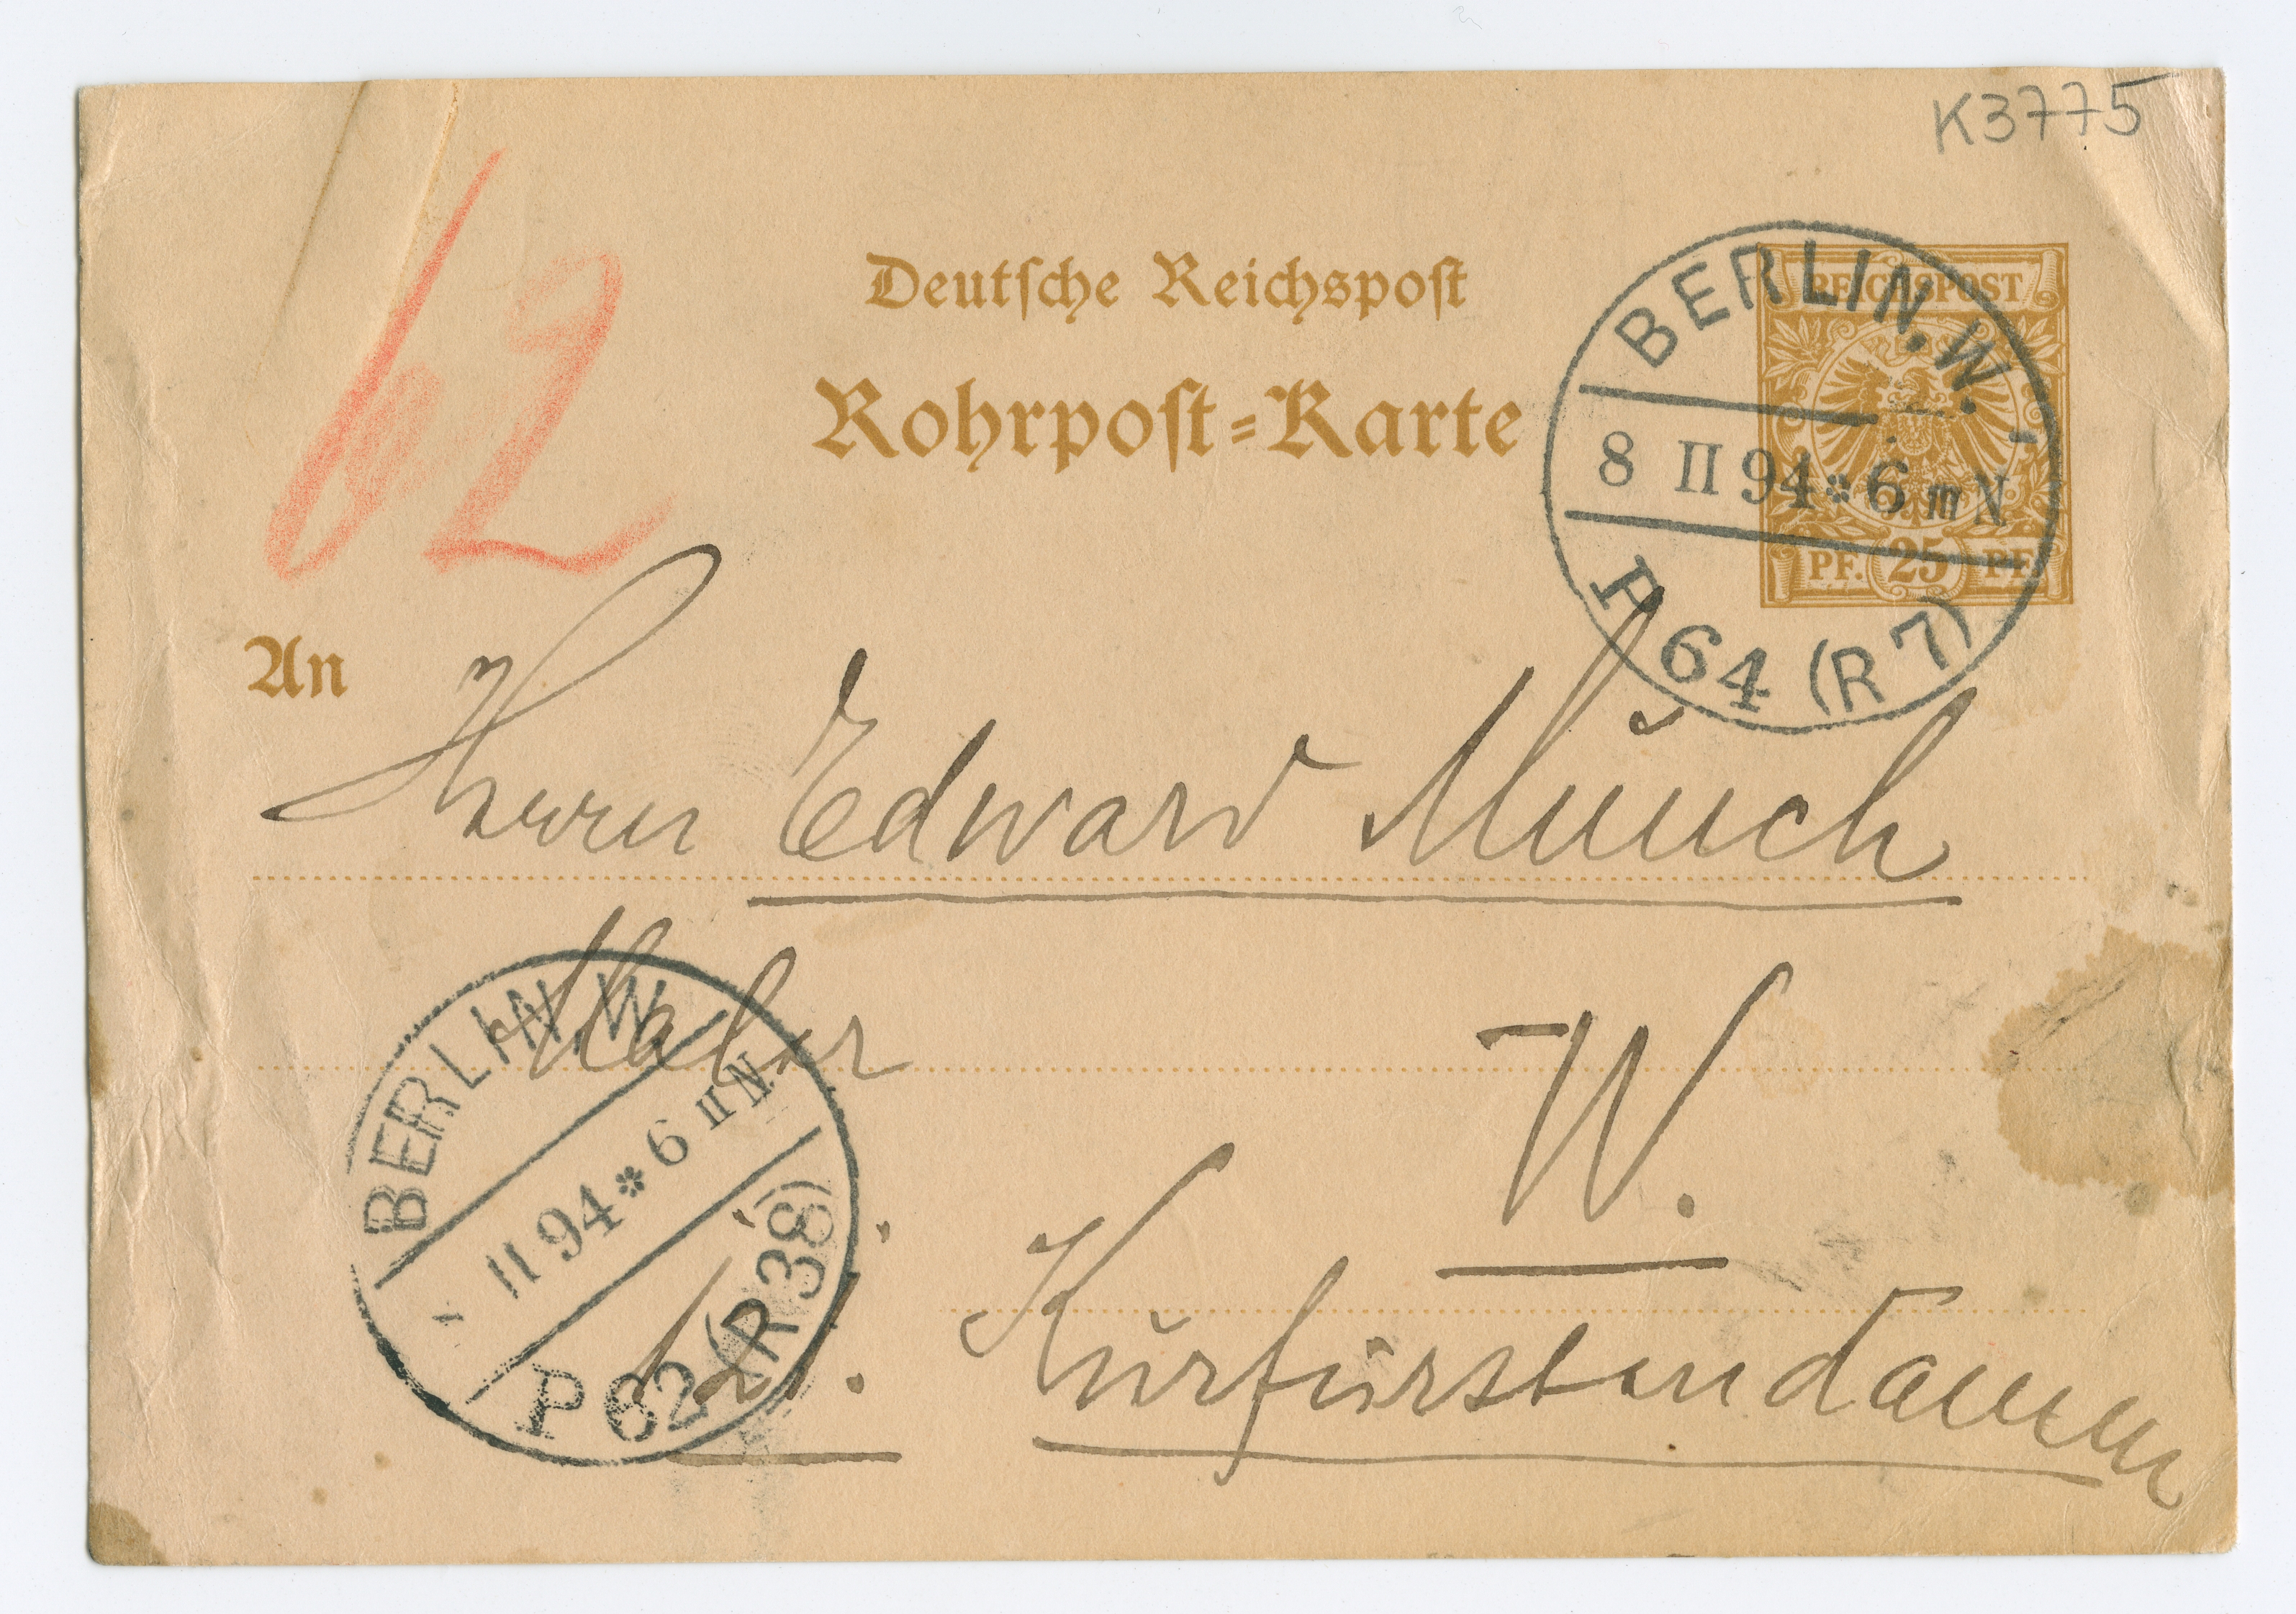 K3775
62
Deutsche Reichspost
Rohrpost-Karte
REICHSPOST
PF. 25 PF.
BERLIN, W.
8 II 94 * 6 III N
P 64 (R 7)
An
Herrn Edward Munch
Maler
W.
BERLIN W
II 94 * 6 II N
P 62 (R 38)
Kurfürstendamm